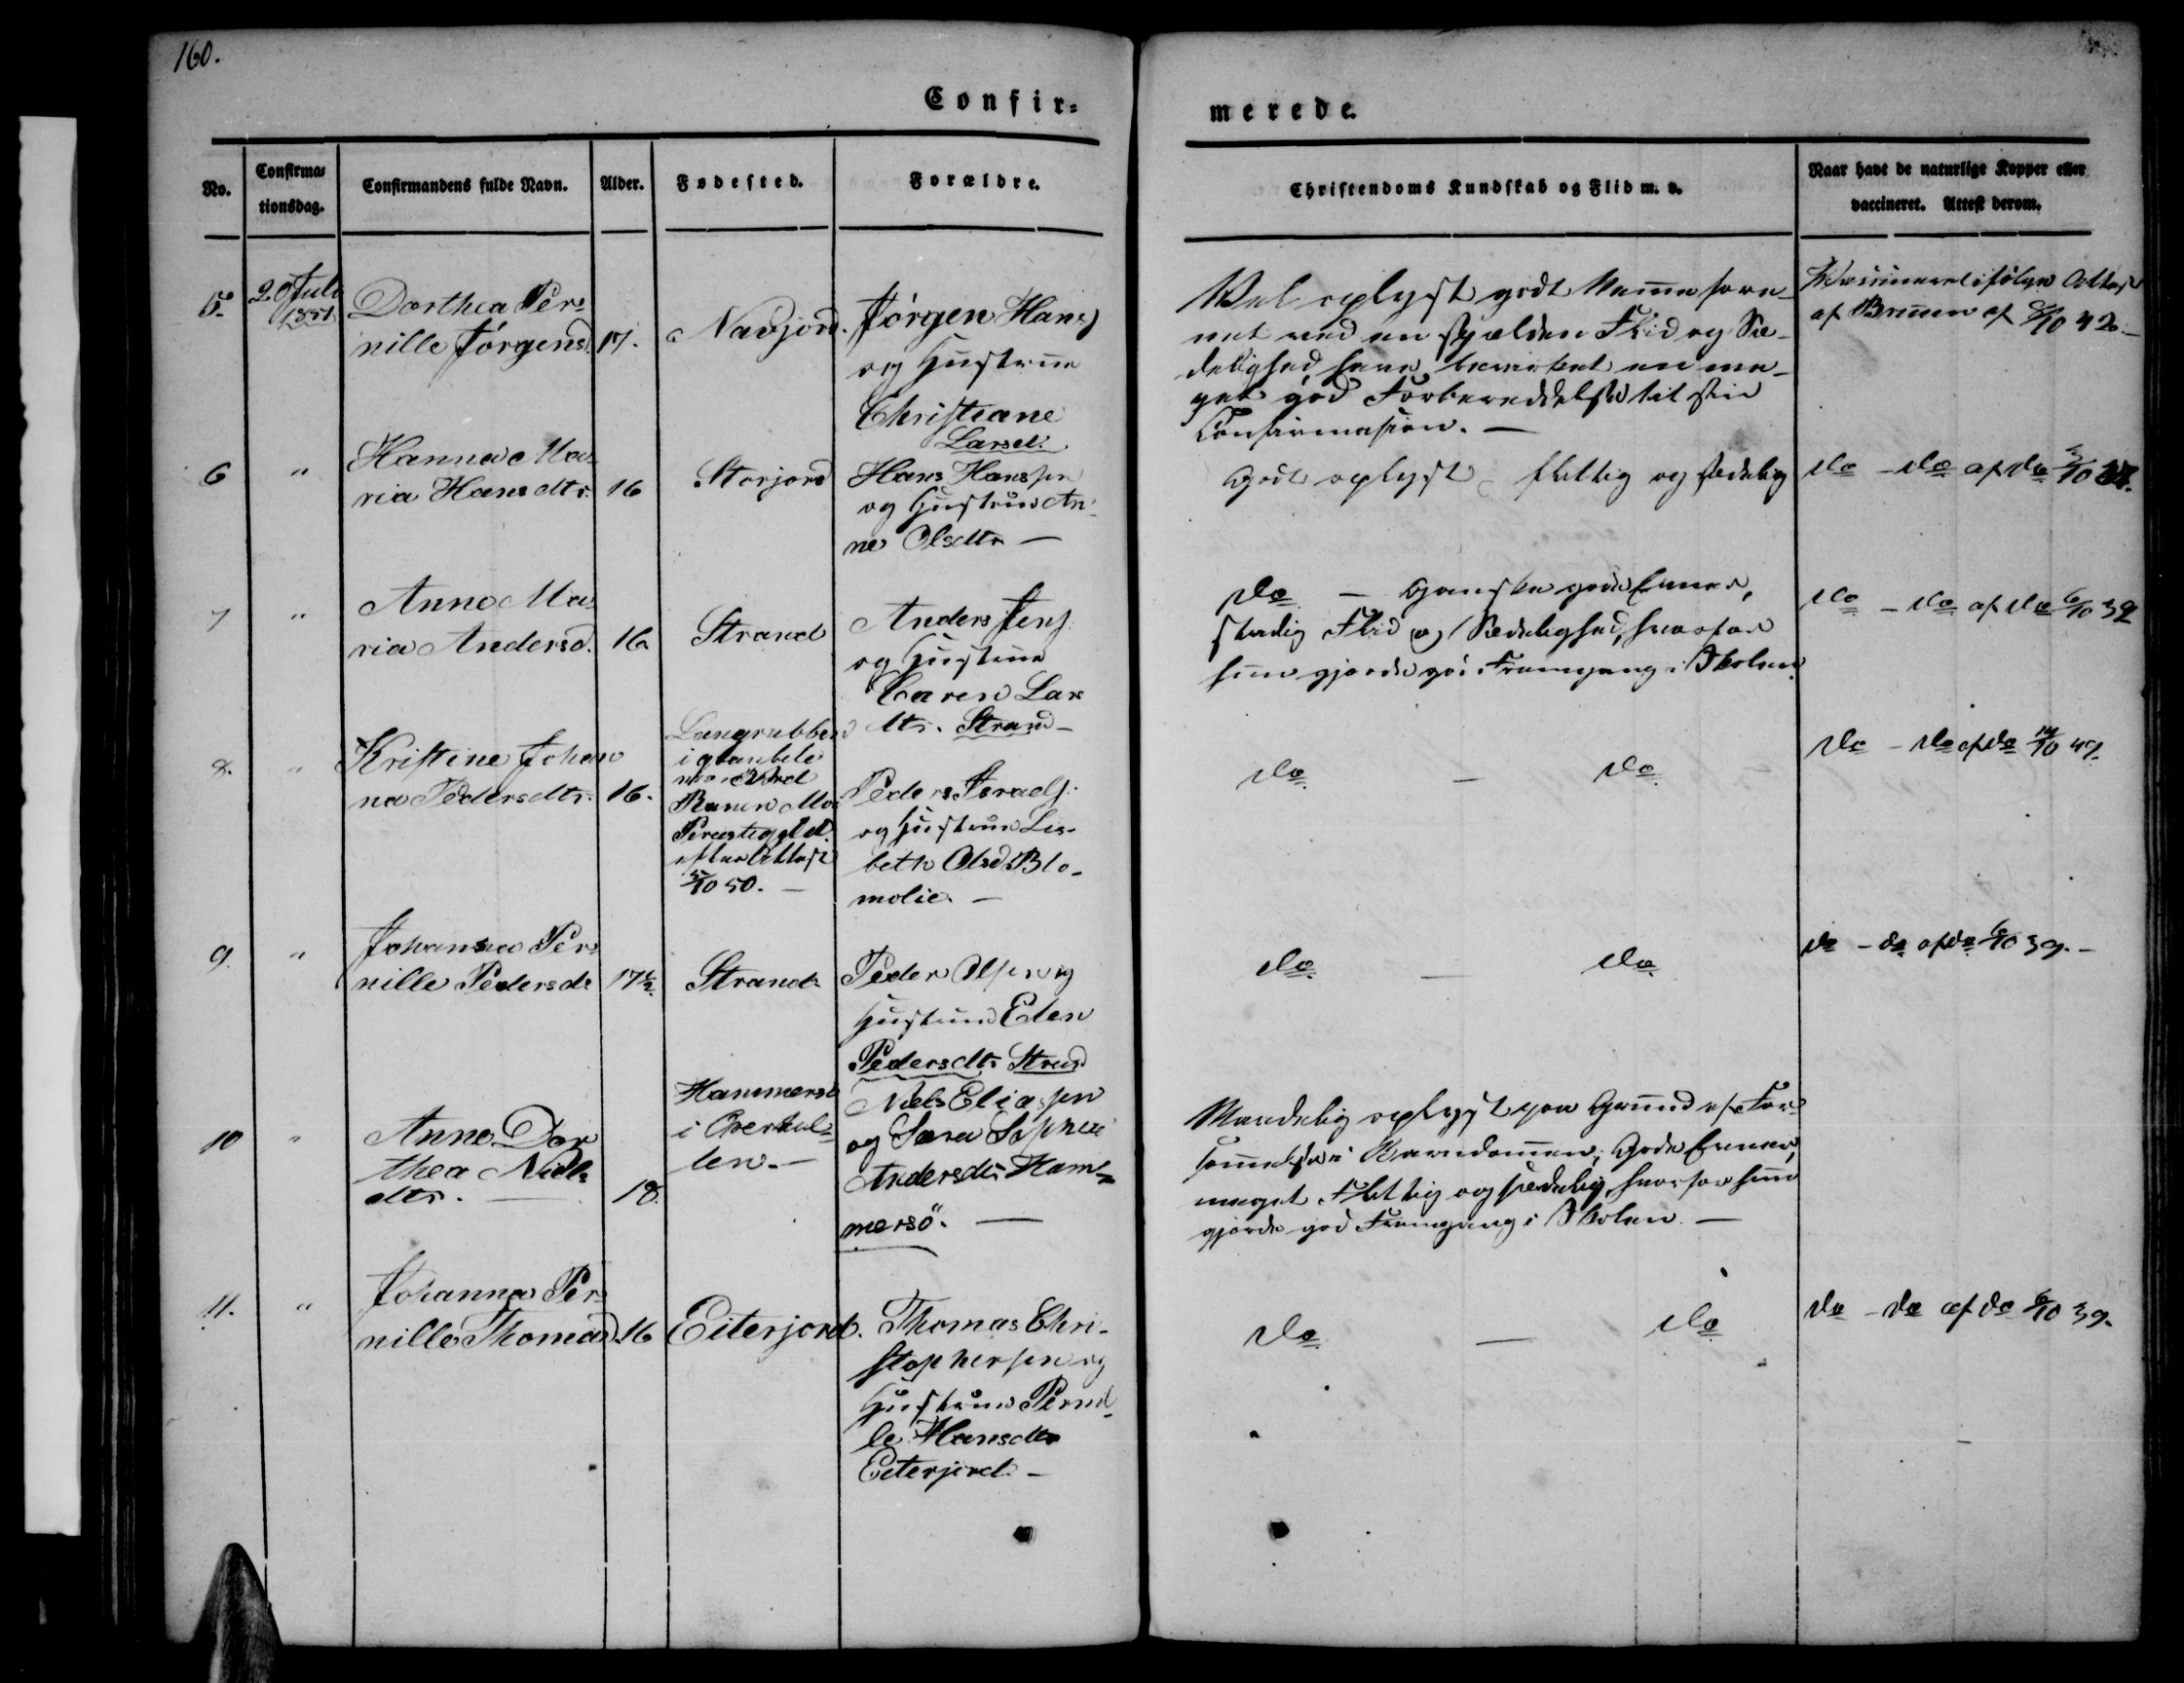 160.
Confir=
merede.
No.
Confirma=
tionsdag.
Confirmandens fulde Navn.
Alder.
Fødested.
Forældre.
Christendoms Kundskab og Flid m. v.
Naar havt de naturlige Kopper eller
vaccineret. Attest derom.
5.
20 Juli
1851
Dorthea Per=
nille Jörgensd.
17.
Navjord.
Jörgen Hans
og Hustrue
Christiane
Larsd.
Vel oplyst godt Nemme fore-
net med en sjælden Flid og Sæ-
delighed have bevirket en me-
get god Forberedelse til sin
Confirmasion. —
Vaccineret ifölge Attest
af Bruun af 10 42. —
6
"
Hanna Ma=
ria Hansdtr.
16
Storjord
Hans Hanssen
og Hustrue An=
ne Olsdtr —
Godt oplyst flittig og sædelig
do - do af do 5/10 37.
7
"
Anne Ma=
ria Andersd.
16
Strand
Anders Jens
og Hustrue
Caren Lars
dtr. Strand —
do — Ganske gode Evner,
stadig Flid og Sædelighed, hvorfor
hun gjorde god Fremgang i Skolen.
do - do af do 6/10 39
8.
"
Kristine Johan
na Pedersdtr.
16.
Langrabben
Ranen Mo
Præstegjeld
efter Attest
5/10 50. —
Peder Israels.
og Hustrue Lis-
beth Olsd. Blo-
molie. —
do — do
do - do af do 14/10 47.
9.
"
Johanna Per=
nille Pedersd:
17½.
Strand
Peder Olsen og
Hustrue Elen
Pedersdtr Strand
do — do
do - do af do 6/10 39. —
10
"
Anne Dor
thea Niels
dtr. —
18.
Hammersö
i Overhal=
len. —
Niels Eliassen
og Sara Sophie
Andersdtr Ham=
mersö. —
Maadelig oplyst paa Grund af For=
sömmelse i Barndommen; Gode Evner,
meget flittig og sædelig, hvorfor hun
gjorde god Fremgang i Skolen. —
11.
"
Johanna Per=
nille Thomasd.
16
Eiterjord.
Thomas Chri-
stophersen og
Hustrue Pernil=
le Hansdtr
Eiterjord. —
do — do
do - do af do 6/10 39.